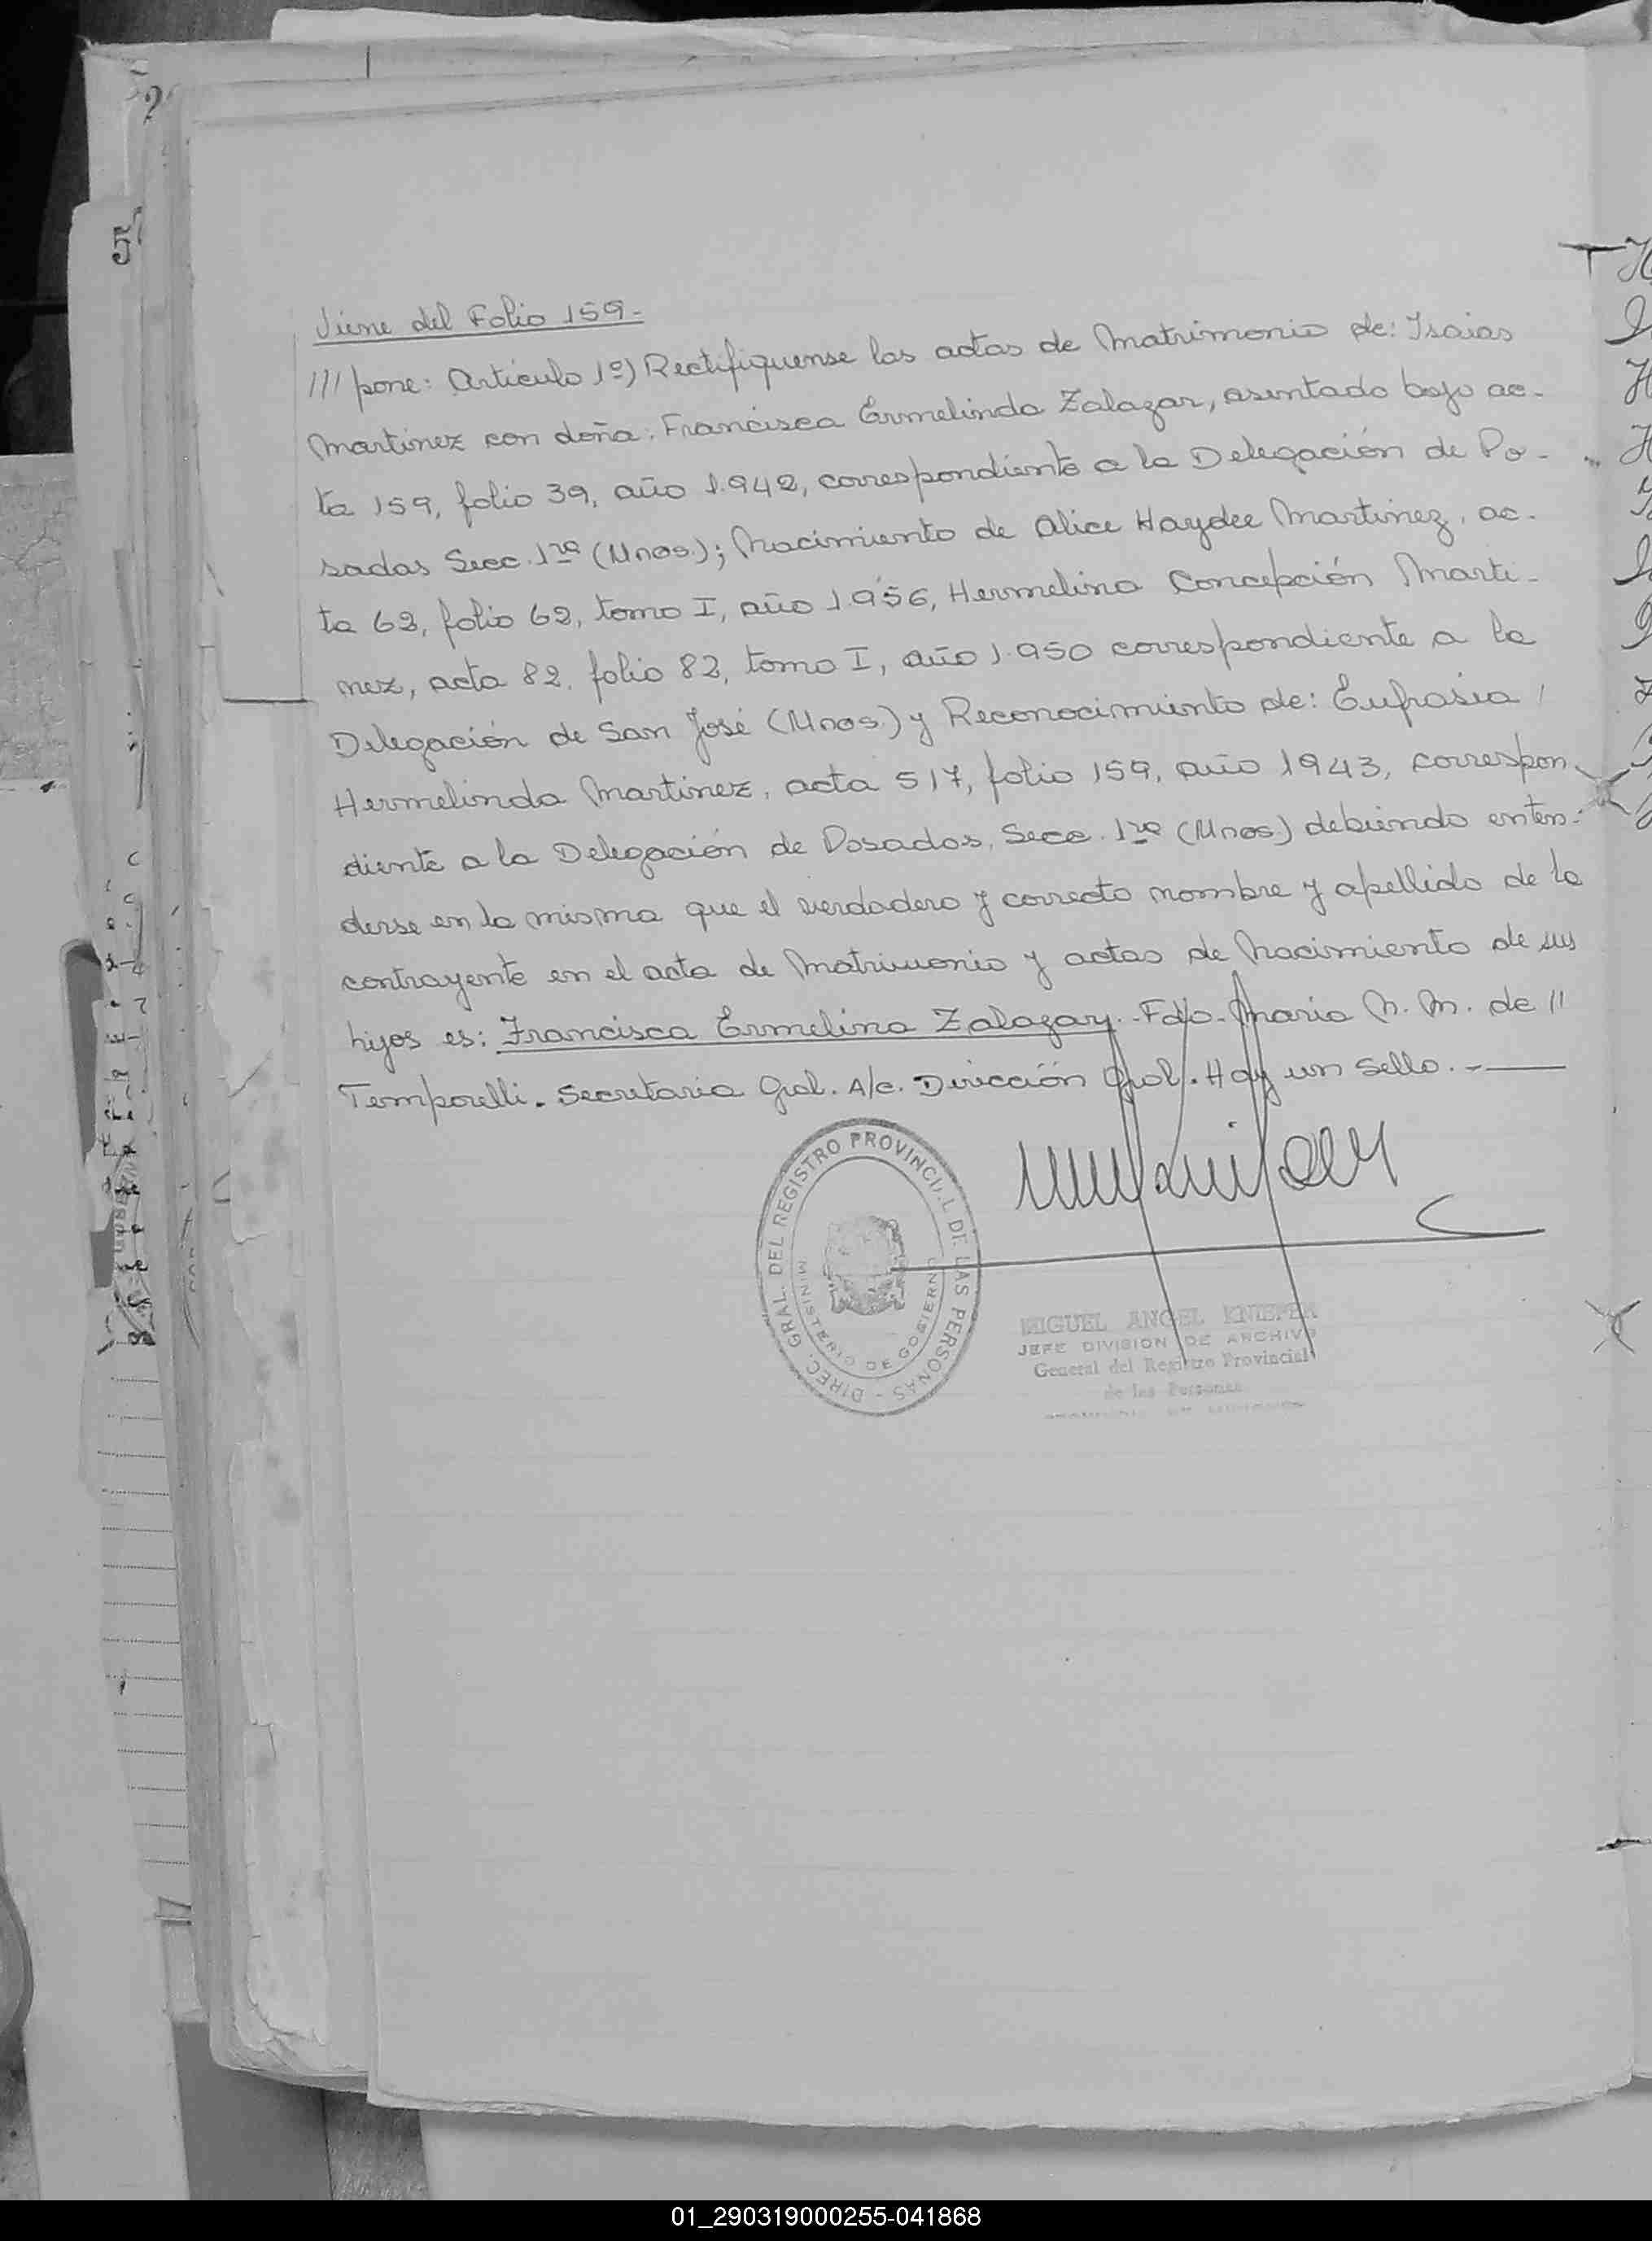 Viene del Folio 159.-
/// pone: Artículo 1º) Rectifiquense las actas de Matrimonio de: Isaias
Martinez con doña: Francisca Ermelinda Zalazar, asentado bajo ac-
ta 159, folio 39, año 1.942, correspondiente a la Delegación de Po-
sadas Secc. 1ra (Mnes.); Nacimiento de Alice Haydee Martinez, ac-
ta 62, folio 62, tomo I, año 1.956, Hermelina Concepción Marti-
nez, acta 82, folio 82, tomo I, año 1.950 correspondiente a la
Delegación de San José (Mnes.) y Reconocimiento de: Eufrasia /
Hermelinda Martinez, acta 517, folio 159, año 1943, correspon-
diente a la Delegación de Posadas, Secc. 1ra (Mnes.) debiendo enten-
derse en la misma que el verdadero y correcto nombre y apellido de la
contrayente en el acta de Matrimonio y actas de Nacimiento de sus
hijos es: Francisca Ermelina Zalazar.-Fdo.-Maria N. M. de //
Temporelli. Secretaria Gral. A/c. Dirección Gral. Hay un sello.-
DIREC. GRAL. DEL REGISTRO PROVINCIAL DE LAS PERSONAS -
MINISTERIO DE GOBIERNO
MIGUEL ANGEL KNIEPER
JEFE DIVISION DE ARCHIVO
General del Registro Provincial
de las Personas
5
01_290319000255-041868